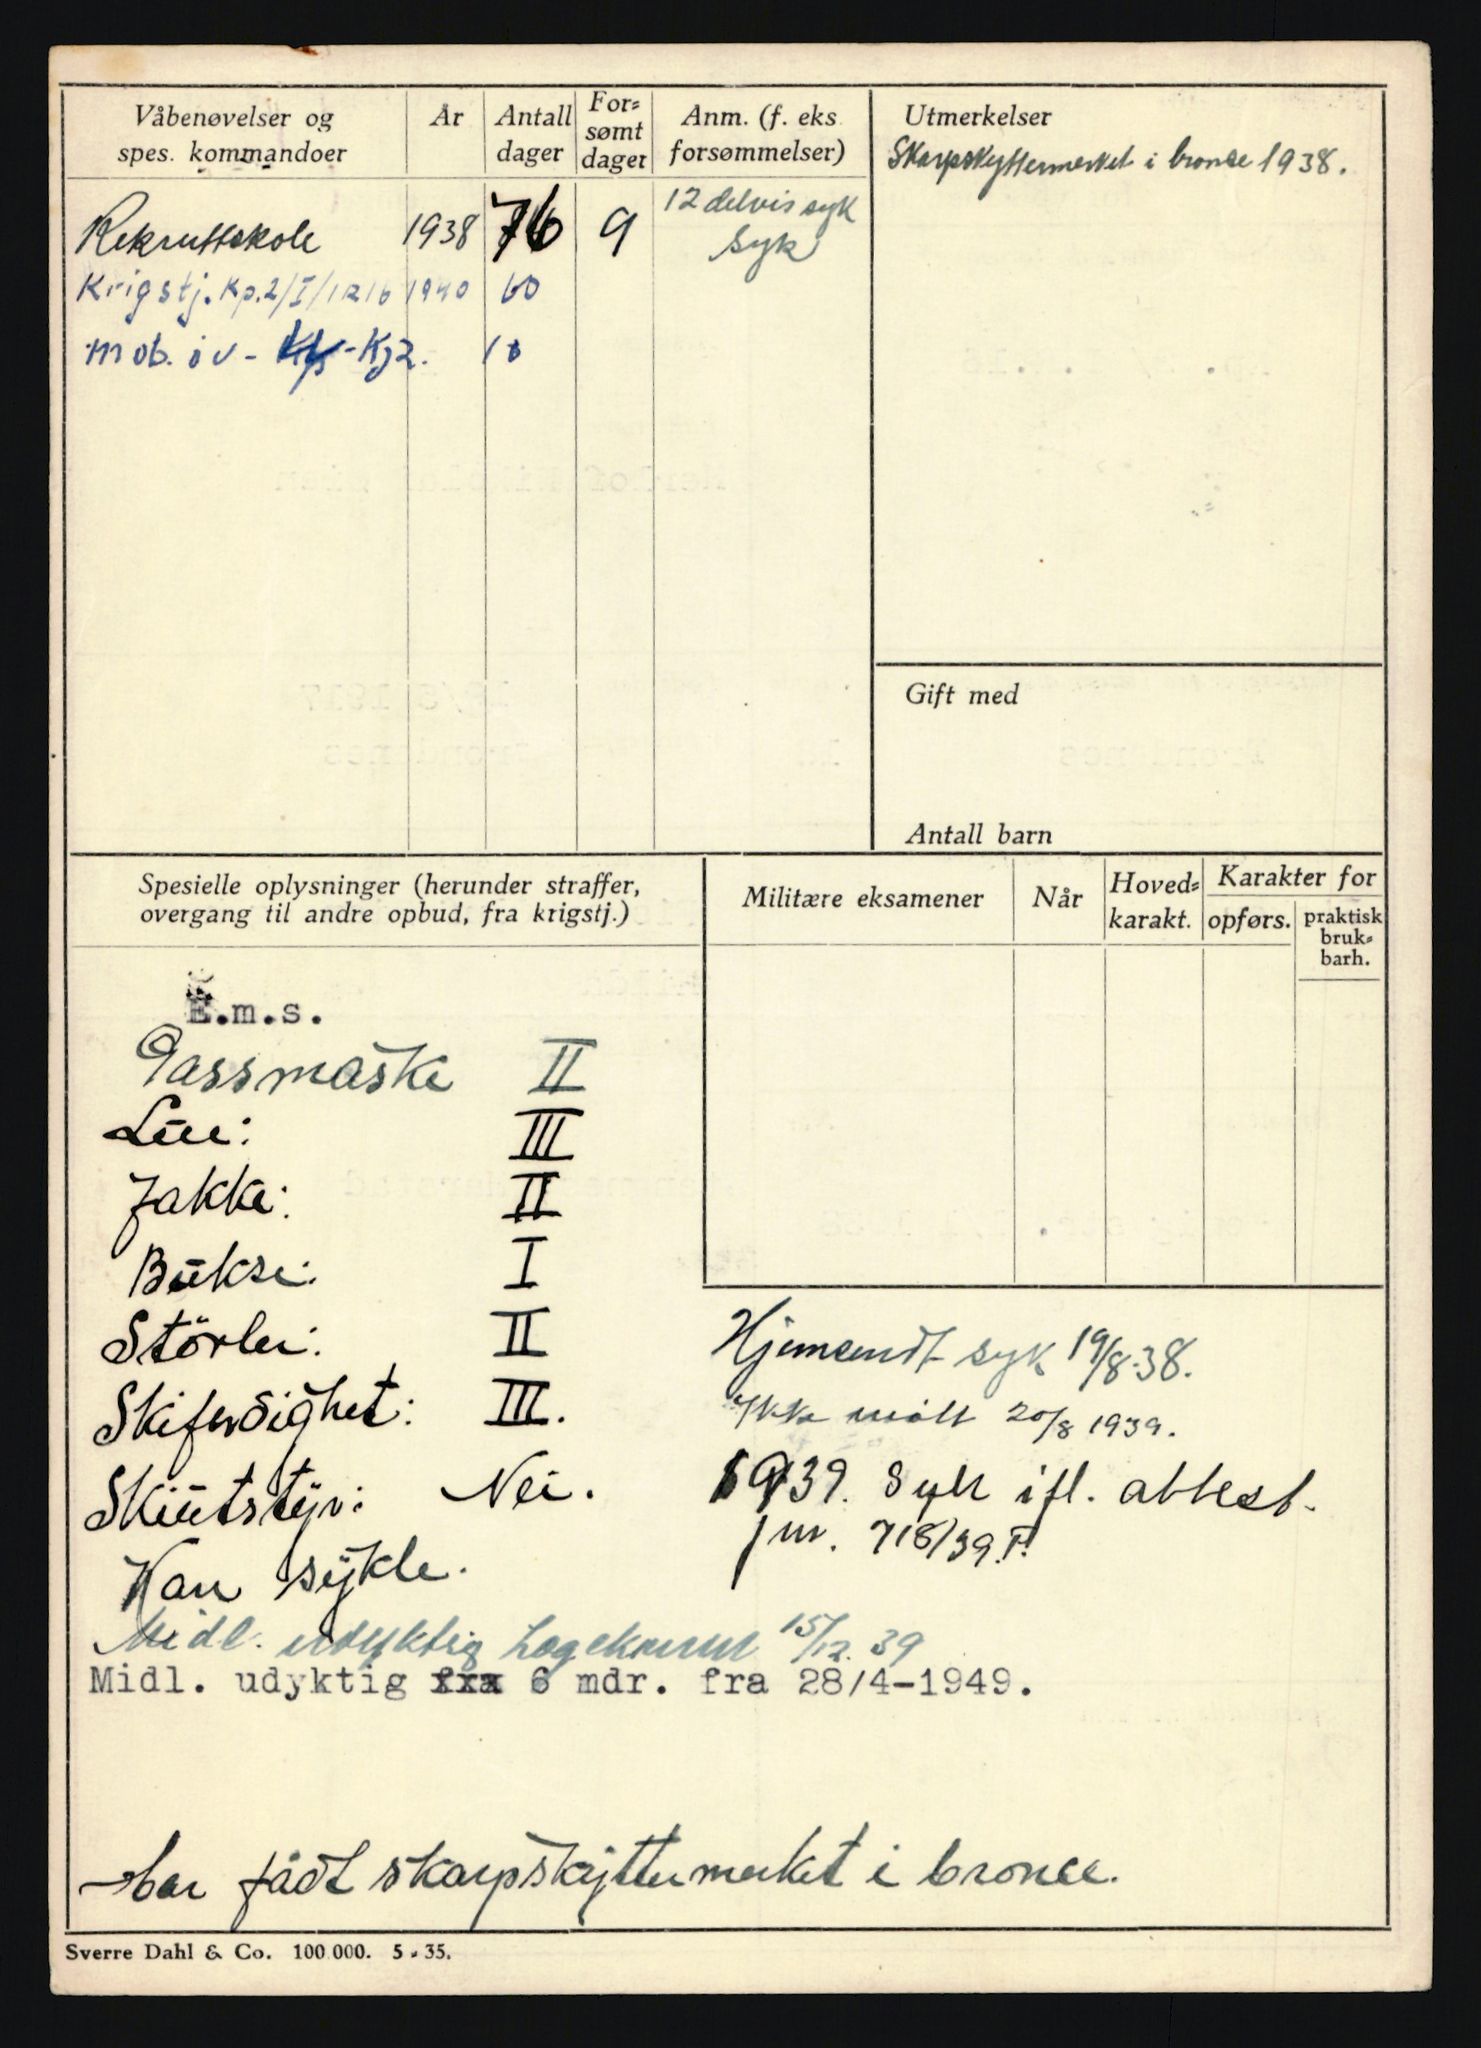 Våbenøvelser og spes. kommandoer
År
Antall dager
For-sømt dager
Anm. (f. eks forsømmelser)
Utmerkelser
Skarpskyttermerket i bronse 1938.
Rekruttskole 1938 76 9 12 delvis syk
syk
Krigstj. Kp.2/I/IR16 1940 60
mob. øv - Kp - Kj2. 10
Gift med
Antall barn
Spesielle oplysninger (herunder straffer,
overgang til andre opbud, fra krigstj.)
Militære eksamener
Når
Hoved-karakt.
Karakter for
opførs.
praktisk bruk-barh.
E.m.s.
Gassmaske II
Lue: III
Jakke: II
Bukse: I
Störler: II
Skiferdighet: III.
Skiutstyr: Nei.
Kan sykle.
Hjemsendt syk 19/8-38.
Ikke møtt 20/8 1939.
1939. Syk ifl. attest.
jnr. 718/39.P.
Midl. udyktig Legekomm 15/12.39
Midl. udyktig fra 6 mdr. fra 28/4-1949.
har fådt skarpskyttermerket i bronse.
Sverre Dahl & Co. 100 000. 5 - 35.